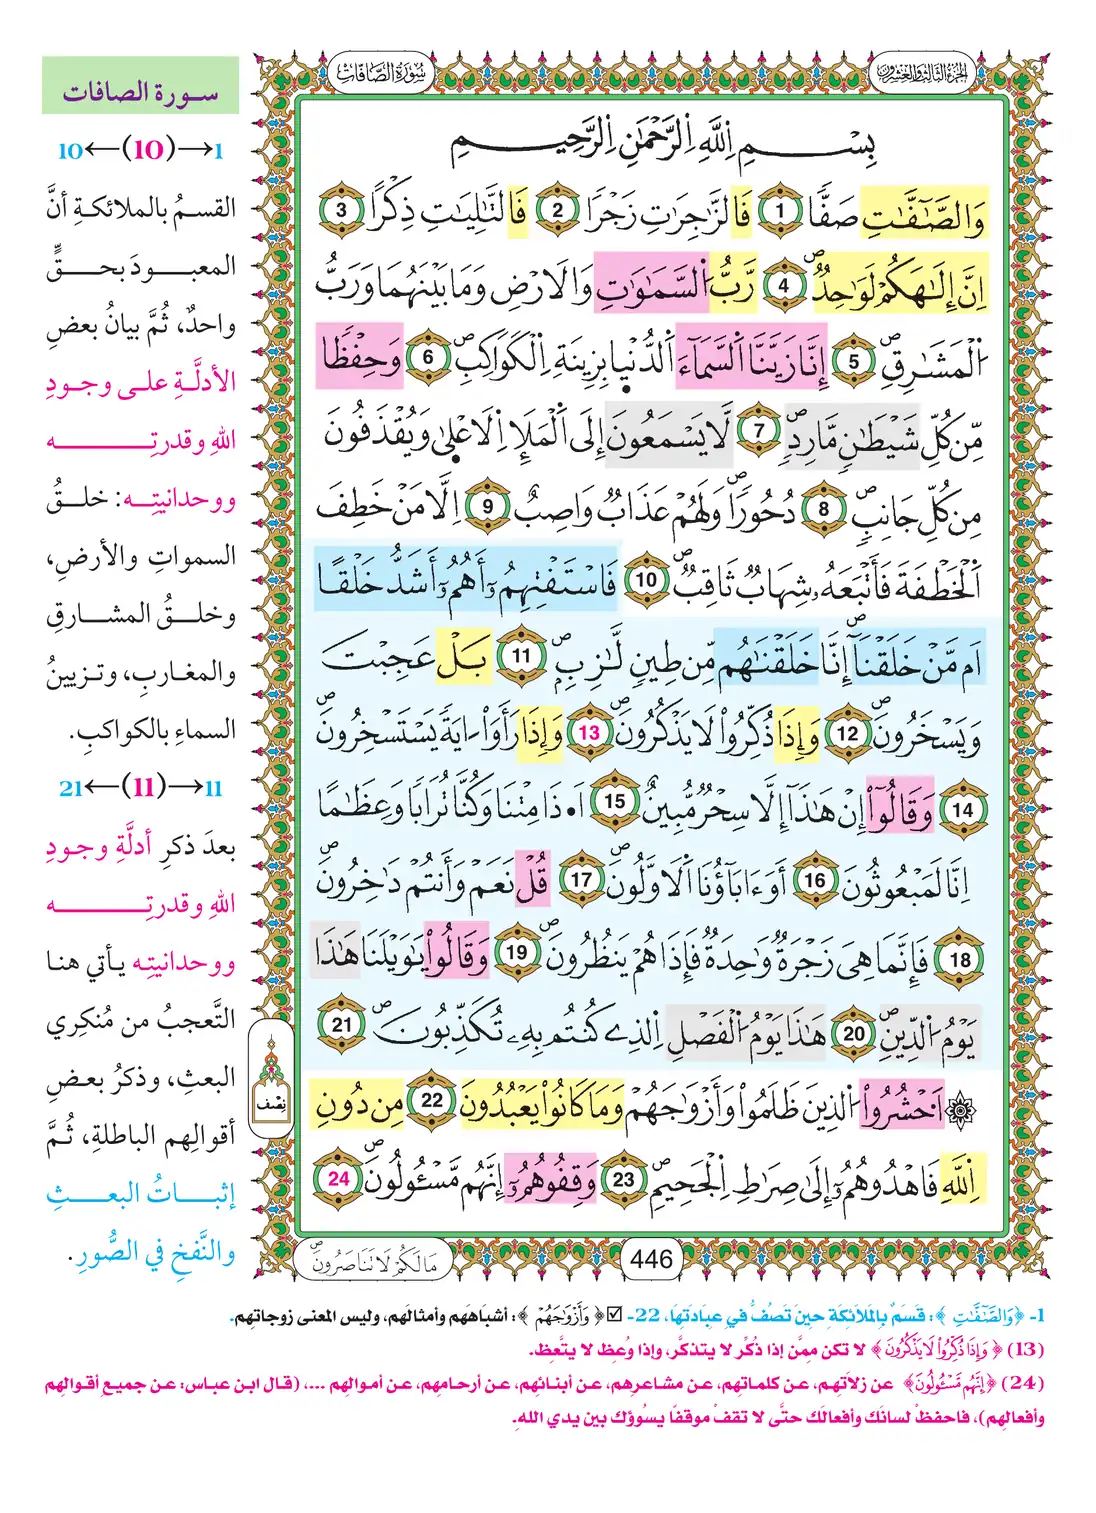 الجزء الثالث والعشرون
سورة الصافات
بِسْمِ اِللَّهِ اِلرَّحْمَٰنِ اِلرَّحِيمِ
وَالصَّٰٓفَّٰتِ صَفّٗا 1 فَالزَّٰجِرَٰتِ زَجْرٗا 2 فَالتَّٰلِيَٰتِ ذِكْراً 3
اِنَّ إِلَٰهَكُمْ لَوَٰحِدٞۖ 4 رَّبُّ اُلسَّمَٰوَٰتِ وَالَارْضِ وَمَا بَيْنَهُمَا وَرَبُّ
اُلْمَشَٰرِقِۖ 5 إِنَّا زَيَّنَّا اَلسَّمَآءَ اَلدُّنْيا بِزِينَةِ اِلْكَوَاكِبِۖ 6 وَحِفْظٗا
مِّن كُلِّ شَيْطَٰنٖ مَّارِدٖۖ 7 لَّا يَسْمَعُونَ إِلَى اَلْمَلَإِ اِلَاعْلۭىٰ وَيُقْذَفُونَ
مِن كُلِّ جَانِبٖۖ 8 دُحُوراٗۖ وَلَهُمْ عَذَابٞ وَاصِبٌ 9 اِلَّا مَنْ خَطِفَ
اَلْخَطْفَةَ فَأَتْبَعَهُۥ شِهَابٞ ثَاقِبٞۖ 10 فَاسْتَفْتِهِمُۥٓ أَهُمُۥٓ أَشَدُّ خَلْقاً
اَم مَّنْ خَلَقْنَآۖ إِنَّا خَلَقْنَٰهُم مِّن طِينٖ لَّازِبِۖ 11 بَلْ عَجِبْتَ
وَيَسْخَرُونَۖ 12 وَإِذَا ذُكِّرُواْ لَا يَذْكُرُونَۖ 13 وَإِذَا رَأَوَاْ ءَايَةٗ يَسْتَسْخِرُونَۖ
14 وَقَالُوٓاْ إِنْ هَٰذَآ إِلَّا سِحْرٞ مُّبِينٌۖ 15 اَ۟ذَا مِتْنَا وَكُنَّا تُرَاباٗ وَعِظَٰماً
اِنَّا لَمَبْعُوثُونَ 16 أَوَءَابَآؤُنَا اَلَاوَّلُونَۖ 17 قُلْ نَعَمْ وَأَنتُمْ دَٰخِرُونَۖ
18 فَإِنَّمَا هِيَ زَجْرَةٞ وَٰحِدَةٞ فَإِذَا هُمْ يَنظُرُونَۖ 19 وَقَالُواْ يَٰوَيْلَنَا هَٰذَا
يَوْمُ اُلدِّينِۖ 20 هَٰذَا يَوْمُ اُلْفَصْلِ اِلذِے كُنتُم بِهِۦ تُكَذِّبُونَۖ 21
۞ اَحْشُرُواْ اُلذِينَ ظَلَمُواْ وَأَزْوَٰجَهُمْ وَمَا كَانُواْ يَعْبُدُونَ 22 مِن دُونِ
اِللَّهِۖ فَاهْدُوهُمُۥٓ إِلَىٰ صِرَٰطِ اِلْجَحِيمِۖ 23 وَقِفُوهُمُۥٓ إِنَّهُم مَّسْـُٔولُونَۖ 24
مَا لَكُمْ لَا تَنَاصَرُونَۖ
446
نِصْف
سـورة الصافات
1→(10)←10
القسمُ بالملائكـةِ أنَّ
المعبـــودَ بحـــقٍّ
واحدٌ، ثُمَّ بيانُ بعضِ
الأدلَّـةِ علـى وجـودِ
اللهِ وقدرتِـــــــــه
ووحدانيتِـــه: خلـــقُ
السمواتِ والأرضِ،
وخلـقُ المشــارقِ
والمغـاربِ، وتـزيينُ
السماءِ بالكواكبِ.
11→(11)←21
بعدَ ذكرِ أدلَّةِ وجـودِ
اللهِ وقدرتِـــــــــه
ووحدانيتِـه يـأتي هنـا
التَّعجبُ من مُنكِري
البعثِ، وذكرُ بعـضِ
أقوالِهم الباطلةِ، ثُـمَّ
إثبـــاتُ البعـــثِ
والنَّفخِ في الصُّورِ.
1- ﴿وَالصَّٰٓفَّٰتِ﴾: قَسَمٌ بِالمَلَائِكَةِ حِينَ تَصُفُّ فِي عِبَادَتِهَا، 22- ☑﴿وَأَزْوَٰجَهُمْ﴾: أشبَاهَهم وأمثالَهم، وليس المعنى زوجاتِهم.
(13) ﴿وَإِذَا ذُكِّرُواْ لَا يَذْكُرُونَ﴾ لا تكن ممَّن إذا ذُكِّر لا يتذكَّر، وإذا وعِظ لا يتَّعِظ.
(24) ﴿إِنَّهُم مَّسْـُٔولُونَ﴾ عن زلاتِهم، عن كلماتِهم، عن مشاعرِهم، عن أبنـائِهم، عن أرحامِهم، عن أموالِهم ....، (قـال ابن عبـاس: عن جميعِ أقـوالِهم
وأفعالِهم)، فاحفظْ لسانَك وأفعالَك حتَّى لا تقفْ موقفًا يسُوؤك بين يدي اللهِ.